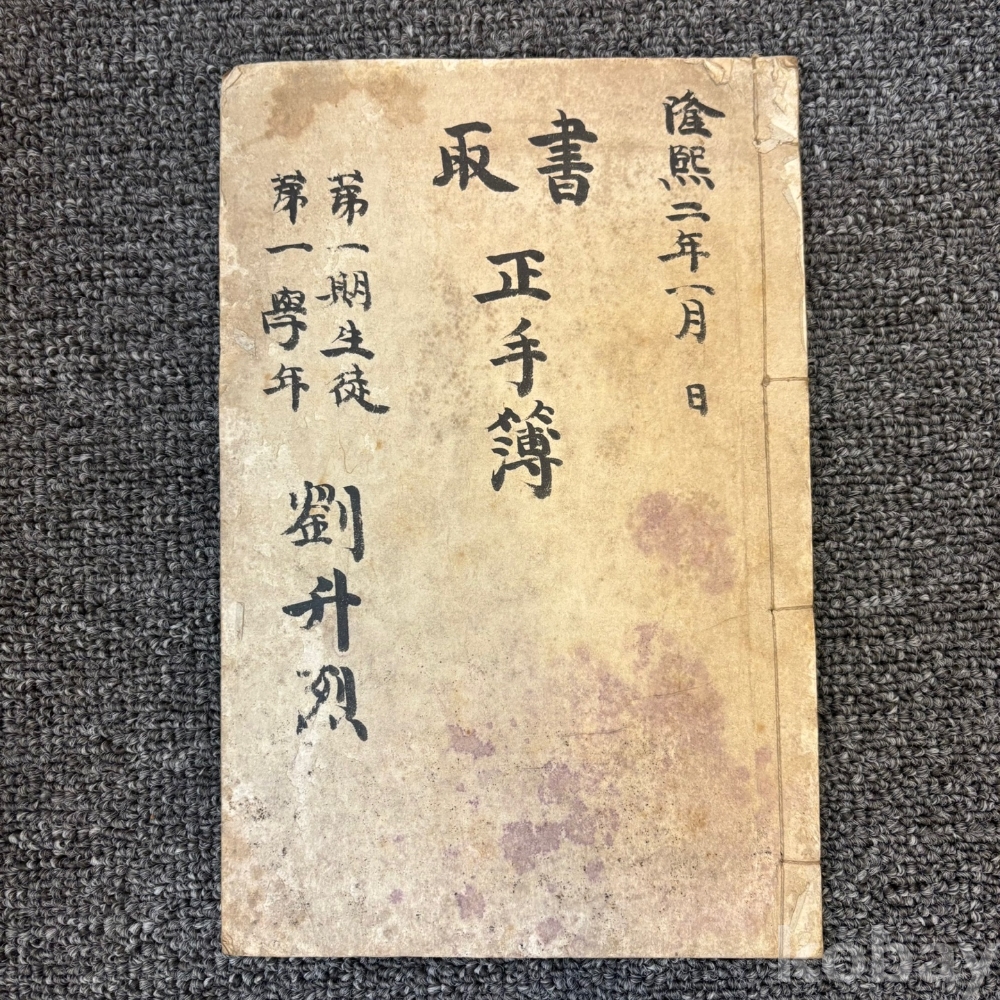 隆熙二年一月 日
書取
正手簿
苐一期生徒
苐一學年
劉升烈
kobay